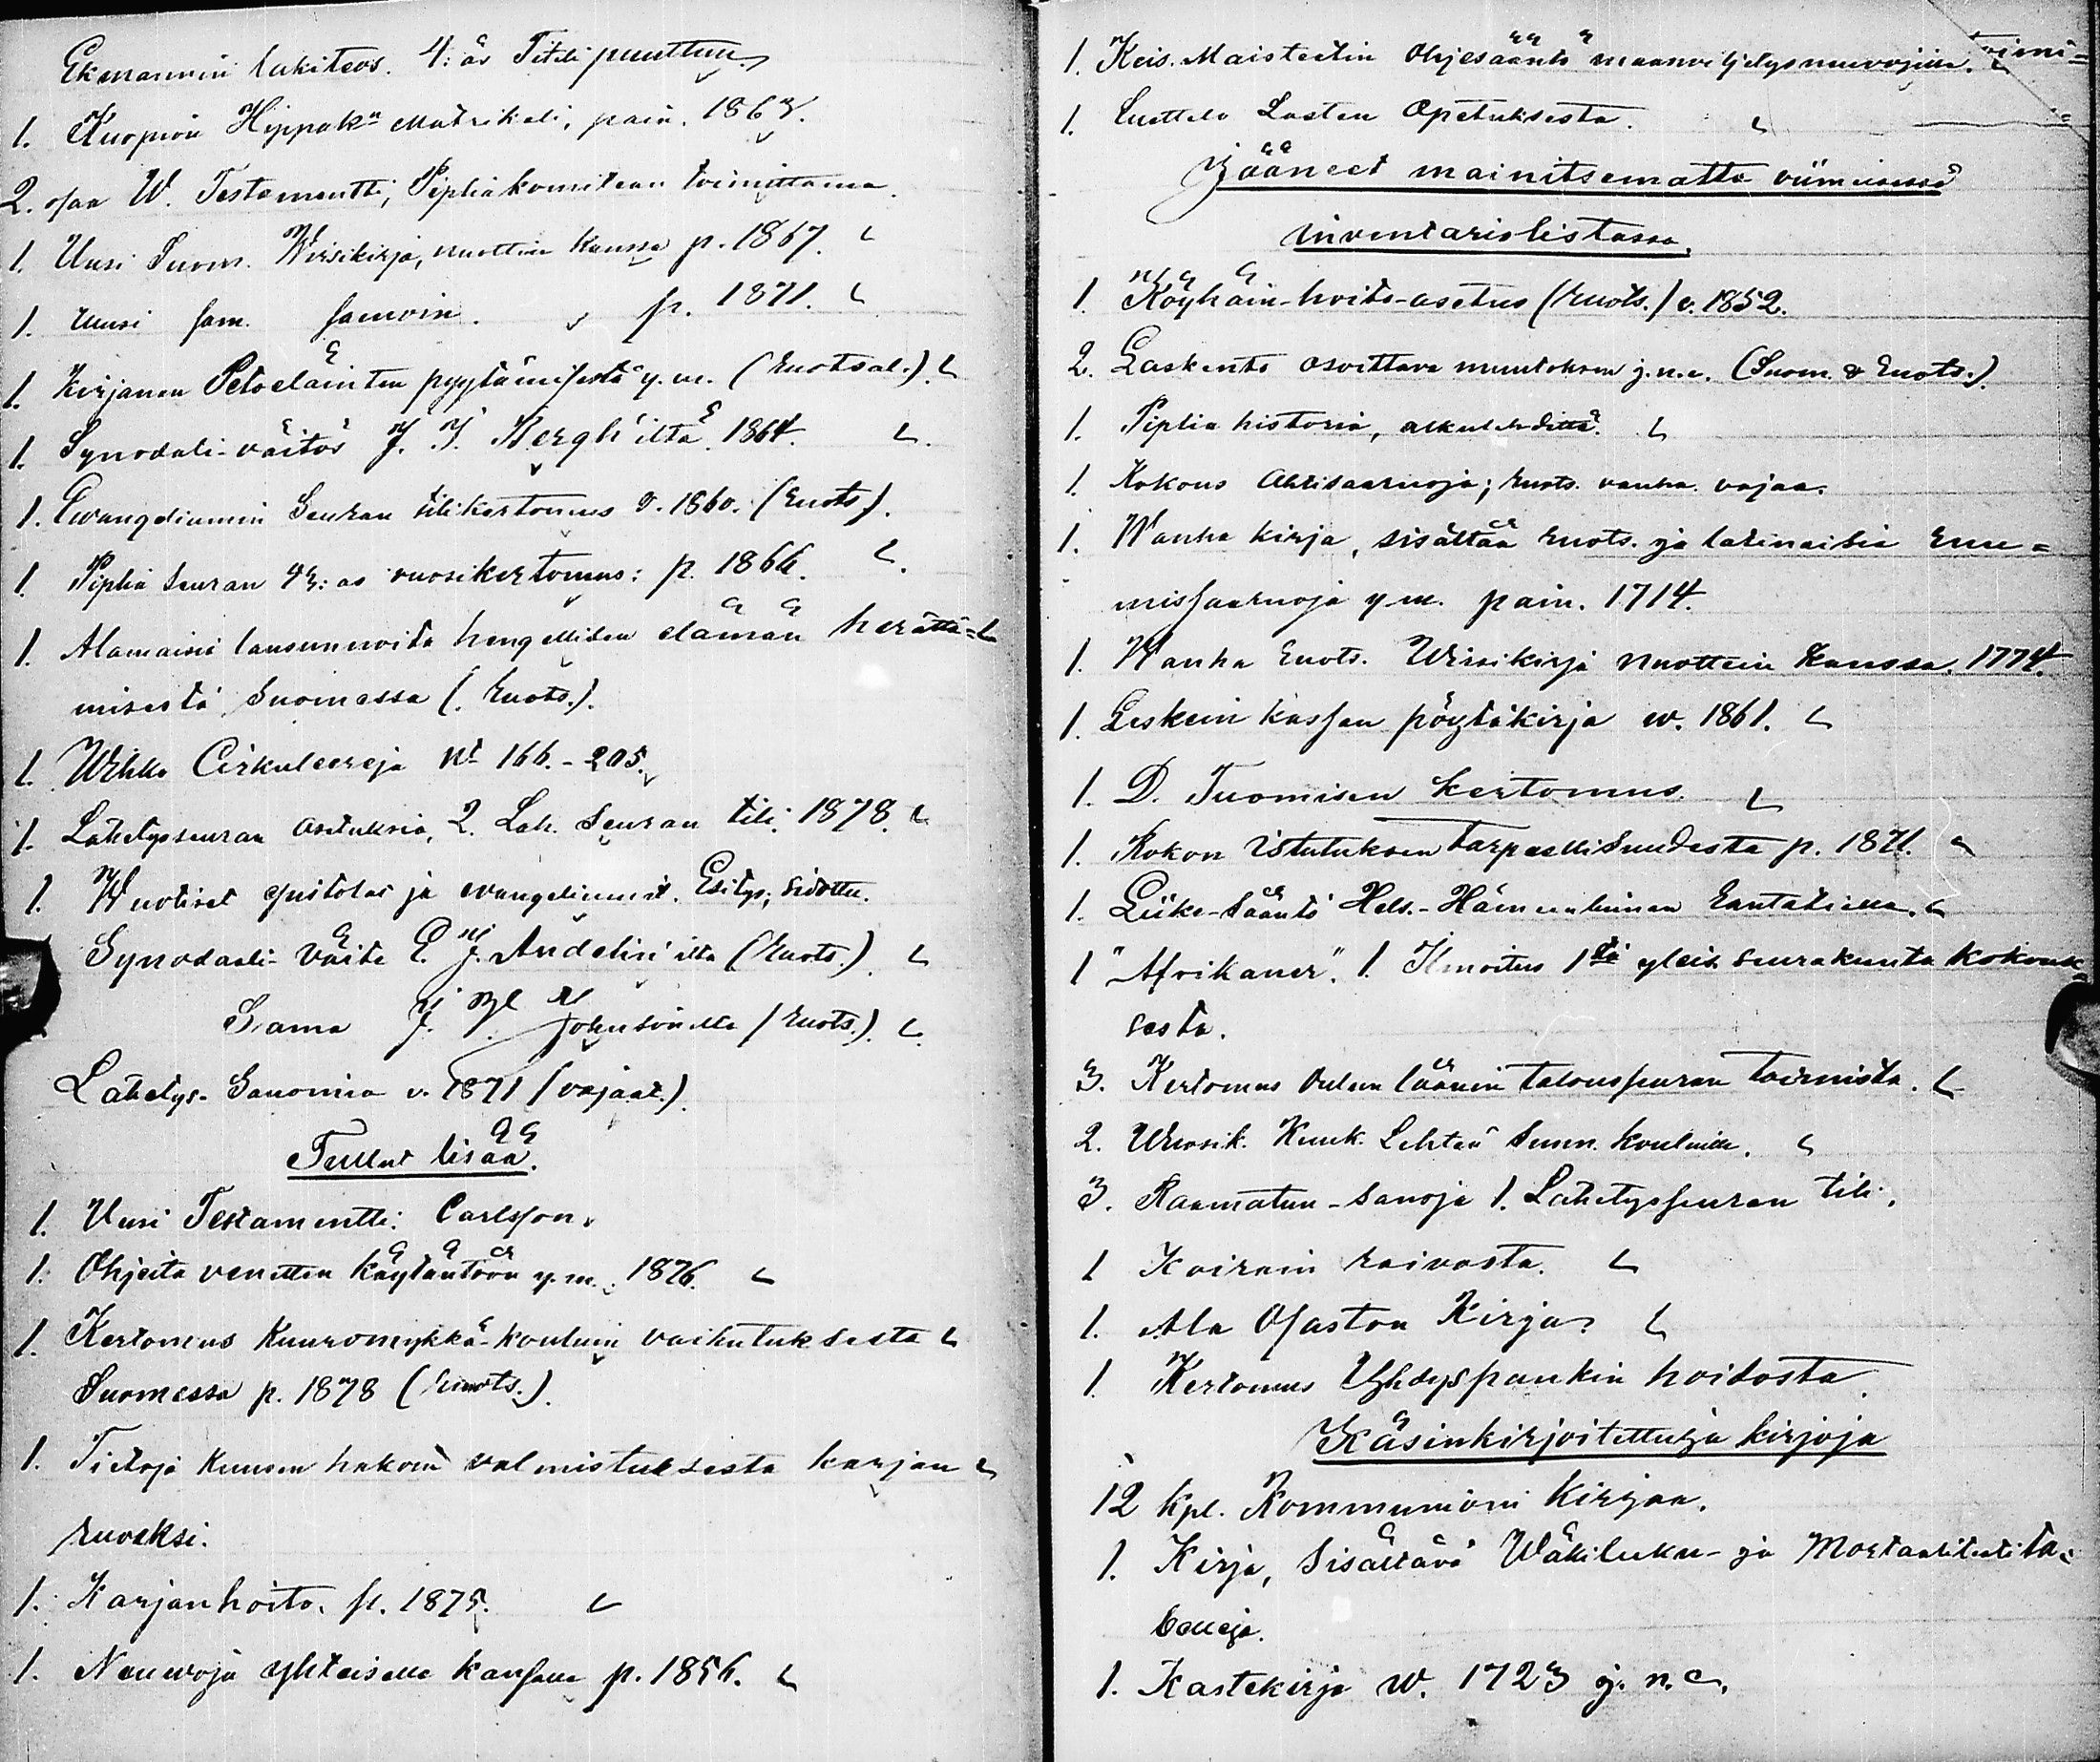 Ekmannin lakiteos. 4:äs Titeli puuttuu
1. Kuopion Hippak:n Matrikeli, pain. 1863.
2. osaa W. Testamentti, Pipliakomitean toimittama.
1. Uusi Suom. Wirsikirja, nuottein kanssa p. 1867.
1. Uusi sam. samoin. p. 1871.
1. Kirjanen Petoeläinten pyytämisestä y.m. (Ruotsal.).
1. Synodali-väitös J. I. Bergh'iltä 1864.
1. Evangeliumin Seuran tilikertomus v. 1860. (Ruots.).
1. Piplia Seuran 43:as vuosikertomus: p. 1866.
1. Alamaisia lausunnoita hengellisen elämän herättä=
misestä Suomessa (Ruots.).
1. Wihko Cirkuleereja No 166.-205.
1. Lähetysseuran asetuksia, 2. Läh. Seuran tili. 1878.
1. Wuotiset epistolat ja evangeliumit. Esitys, sidottu.
Synodaali-Väite E. J. Andelin'ilta (Ruots.)
Sama J. Johnsonilta (Ruots.).
Lähetys-Sanomia v. 1871 (vajaat.).
Tullut lisää.
1. Uusi Testamentti: Carlsson.
1. Ohjeita venetten käytäntöön y.m. 1876.
1. Kertomus Kuuromykkä-kouluin vaikutuksesta
Suomessa p. 1878 (Ruots.).
1. Tietoja Kuusen hakoin valmistuksesta karjan
ruoaksi.
1. Karjanhoito. p. 1875.
1. Neuwoja yhteiselle kansalle p. 1856.
1. Keis. Maisteetin Ohjesääntö maanviljelysneuvojille. toimi=
1. Luettelo Lasten Opetuksesta.
Jääneet mainitsematta viimeisessä
inventarislistassa.
1. Köyhäin-hoito-asetus (Ruots.) v. 1852.
2. Laskento osoittava muutoksen j.n.e. (Suom. & Ruots.).
1. Piplia historia, alkulehdittä.
1. Kokous Ahtisaarnoja; ruots. vanha. vajaa.
1. Wanha kirja, sisältää ruots. ja latinaisia ruu=
missaarnoja y.m. pain. 1714.
1. Wanha Ruots. Wirsikirja nuottein kanssa. 1774.
1. Leskein kassan pöytäkirja w. 1861.
1. D. Tuomisen kertomus.
1. Kokon istutuksen tarpeellisuudesta p. 1871.
1. Liike-Sääntö Hels.-Hämeenlinnan Rautatiellä.
1 "Afrikaner". 1. Ilmoitus 1stä yleis. seurakunta kokouk=
sesta.
3. Kertomus Oulun läänin talousseuran toimista.
2. Wuosik. Kuuk. Lehteä Sunn. kouluille.
3. Raamatun-Sanoja 1. Lähetysseuran tili.
1 Koirain raivosta.
1. Ala Osaston Kirja.
1. Kertomus Yhdyspankin hoidosta.
Käsinkirjoitettuja kirjoja
12 kpl. Kommunioni kirjaa.
1. Kirja, Sisältävä Wäkiluku- ja Mortaaliteetita=
belleja.
1. Kastekirja w. 1723 j.n.e.